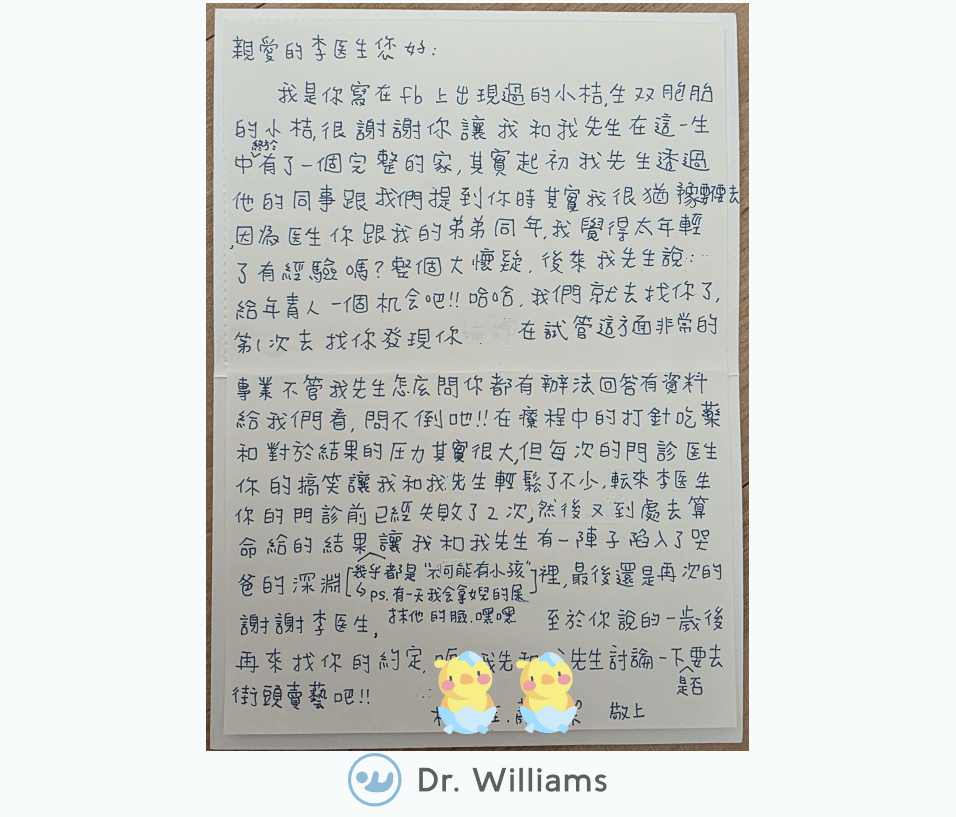 親愛的李医生您好:
我是你寫在fb上出現過的小桔,生双胞胎
的小桔,很謝謝你讓我和我先生在這一生
中終於有了一個完整的家,其實起初我先生透過
他的同事跟我們提到你時其實我很猶豫要不要去
,因為医生你跟我的弟弟同年,我覺得太年輕
了有經驗嗎?整個大懷疑,後來我先生說:‥
給年青人一個机会吧!!哈哈,我們就去找你了,
第1次去找你發現你 在試管這方面非常的
專業不管我先生怎広問你都有辦法回答有資料
給我們看,問不倒吔!!在療程中的打針吃藥
和對於結果的圧力其實很大,但每次的門診医生
你的搞笑讓我和我先生輕鬆了不小,転來李医生
你的門診前已經失敗了2次,然後又到處去算
命給的結果讓我和我先生有一陣子陷入了哭
爸的深淵[幾乎都是"不可能有小孩"]裡,最後還是再次的
↳ps.有一天我会拿女兒的屎
抹他的臉.嘿嘿
謝謝李医生, 至於你說的一歲後
再來找你的約定, 我先和 先生討論一下是否要去
街頭賣藝吧!!
敬上
Dr. Williams